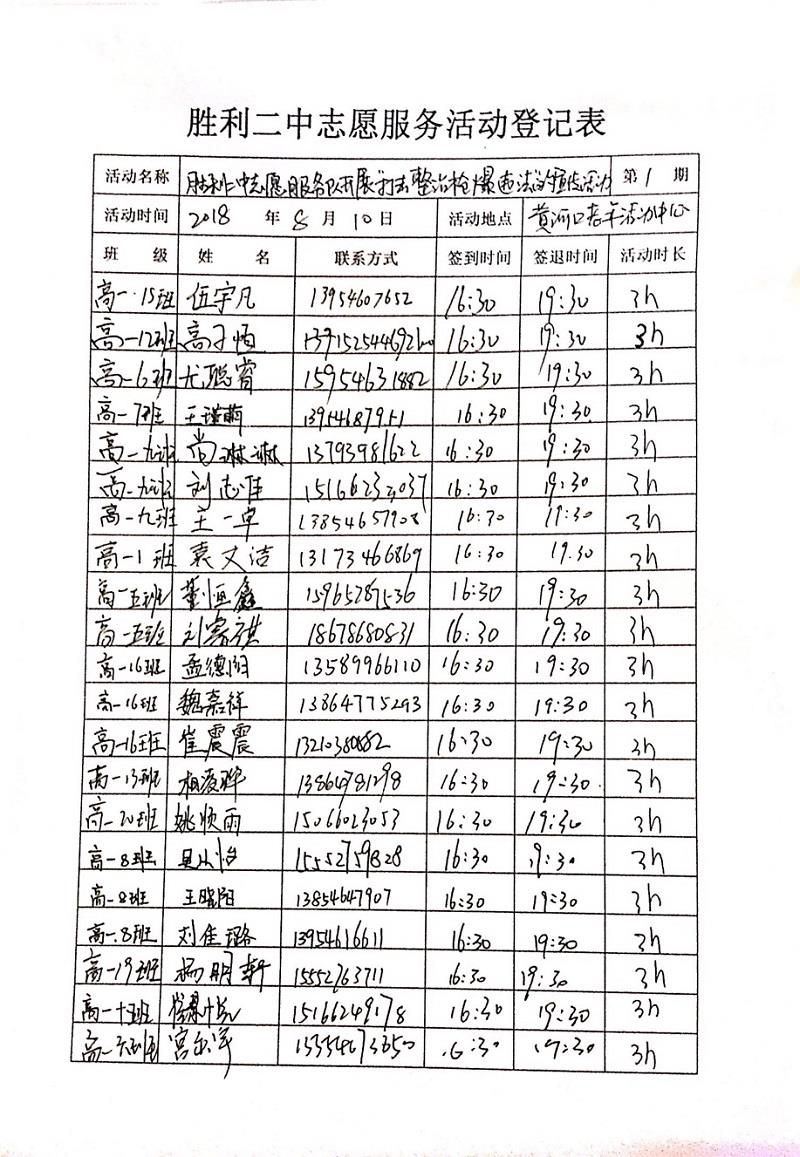 胜利二中志愿服务活动登记表
活动名称 胜利二中志愿服务队开展打击整治枪爆违法的宣传活动 第1期
活动时间 2018年8月10日 活动地点 黄河口老年活动中心
班级 姓名 联系方式 签到时间 签退时间 活动时长
高一·15班 伍宇凡 13954607652 16:30 19:30 3h
高一12班 高子恒 16:30 19:30 3h
高一6班 尤聪睿 15954631882 16:30 19:30 3h
高一7班 王瑾萌 16:30 19:30 3h
高一九班 尚琳琳 13793981622 16:30 19:30 3h
高一九班 刘志佳 15166232037 16:30 19:30 3h
高一九班 王一卓 13854657908 16:30 19:30 3h
高一1班 袁文洁 13173466869 16:30 19:30 3h
高一五班 董恒鑫 15965287536 16:30 19:30 3h
高一五班 18678680831 16:30 19:30 3h
高一16班 孟德 13589966110 16:30 19:30 3h
高一16班 魏嘉祥 13864775293 16:30 19:30 3h
高一16班 崔震震 13210380882 16:30 19:30 3h
高一13班 13864781298 16:30 19:30 3h
高一20班 姚顺雨 15066023053 16:30 19:30 3h
高一8班 15552759828 16:30 19:30 3h
高一8班 王晓阳 13854647907 16:30 19:30 3h
高一8班 刘佳璐 13954616611 16:30 19:30 3h
高一19班 杨明轩 15552763711 16:30 19:30 3h
高一十班 15166249178 16:30 19:30 3h
高一六班 16:30 19:30 3h